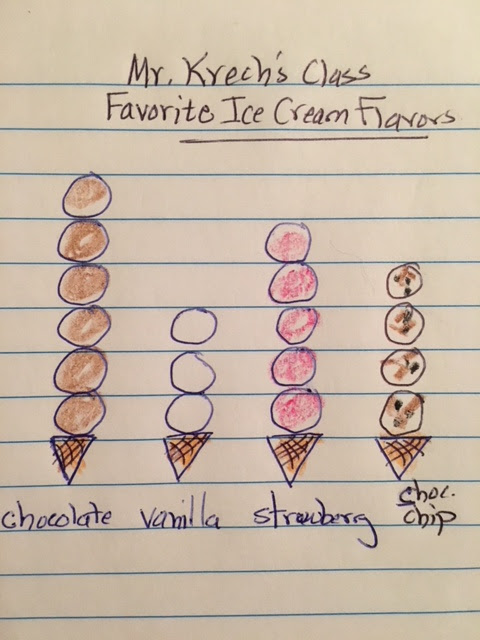 Mr. Krech's Class
Favorite Ice Cream Flavors
chocolate vanilla strawberg choc. chip